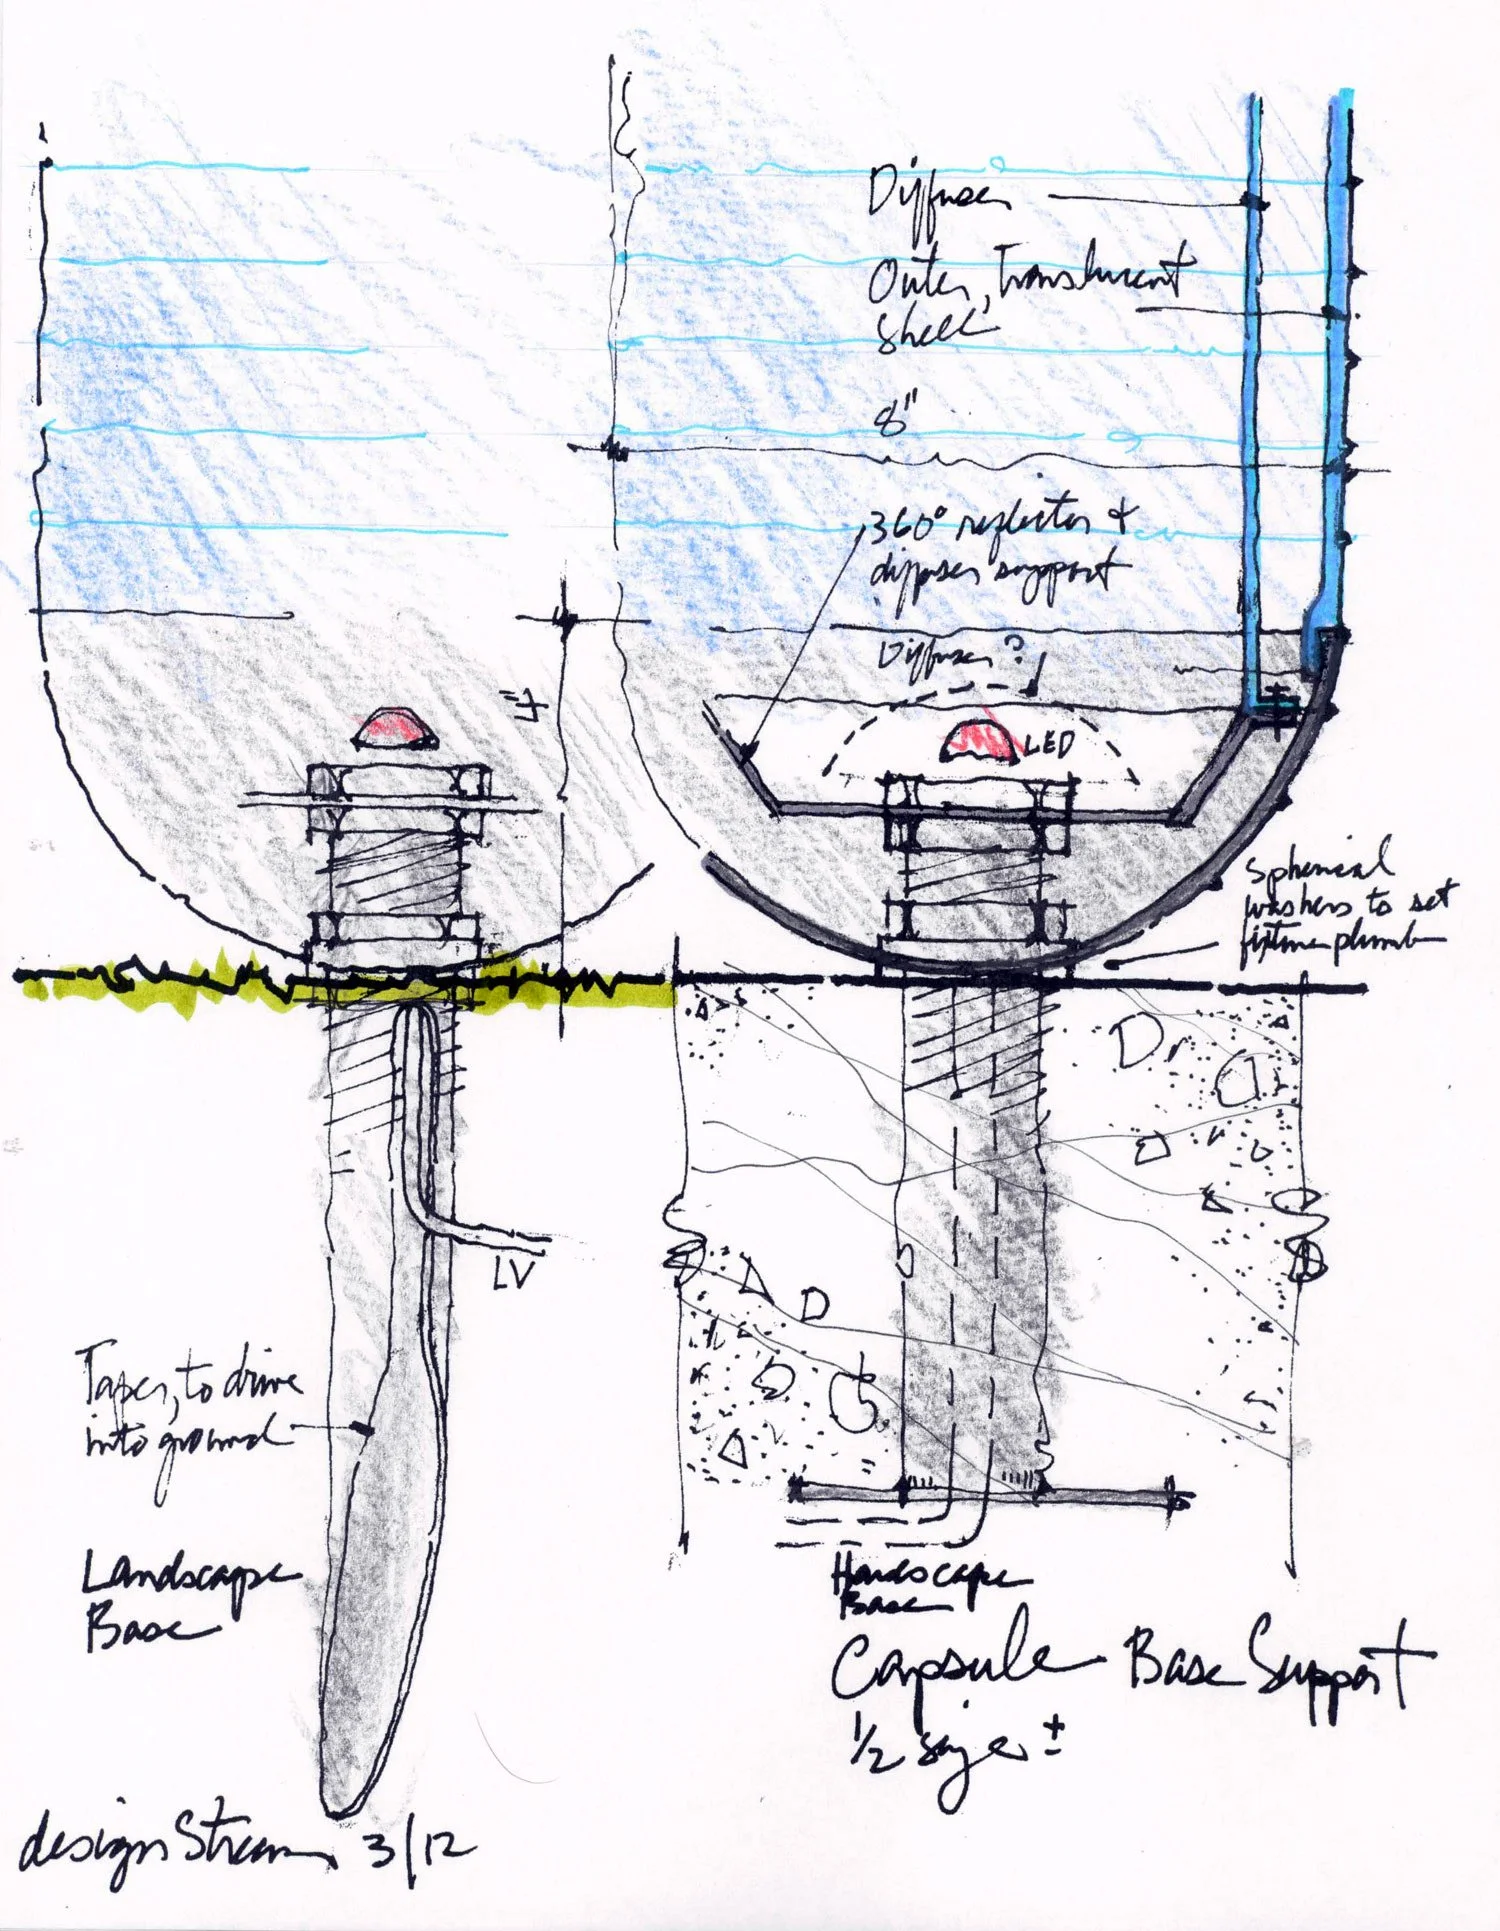 Diffuser
Outer, Translucent
Shell
8"
360° reflector +
diffuser support
Diffuser ?
LED
4"
Spherical
washers to set
fixture plumb
LV
Taper, to drive
into ground
Landscape
Base
Hardscape
Base
Capsule Base Support
1/2 size ±
designStream 3/12